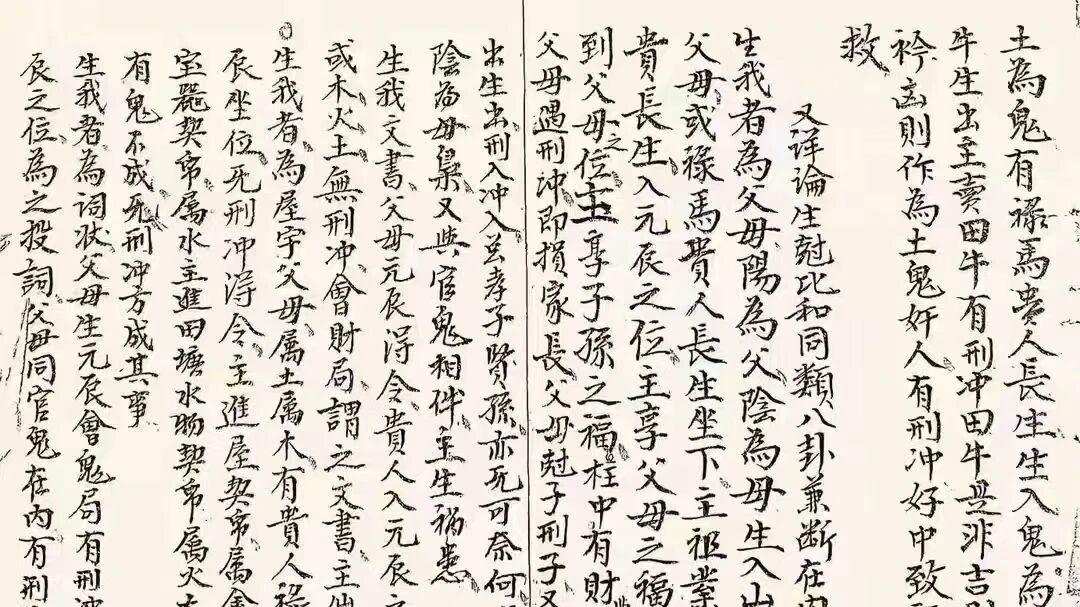 土為鬼有祿馬貴人長生生入鬼為
牛生出主賣田牛有刑冲田牛是非吉
衿凶則作為土鬼奸人有刑冲好中致
救
又详論生尅比和同類八卦兼断在内
生我者為父母陽為父陰為母生入出
父母或祿馬貴人長生坐下主祖業
貴長生入元辰之位主享父母之福
到父母之位主享子孫之福柱中有財
父母遇刑冲即損家長父母尅子刑子又
出生出刑入冲入总孝子賢孫亦无可奈何
陰為母梟又與官鬼相伴主生禍患
生我文書父母元辰得令貴人入元辰之
或木火土無刑冲會財局謂之文書主
生我者為屋宇父母属土属木有貴人祿
辰坐位无刑冲得令主進屋契帛属金
宝器契帛属水主進田塘水物契帛属火
有鬼不成无刑冲方成其事
生我者為詞状父母生元辰會鬼局有刑冲
辰之位為之投詞父母同官鬼在内有刑